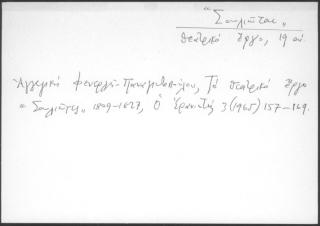 "Σουλιώτες"
Θεατρικό έργο, 19 αι.
Αγγελικά Φενερλή-Παναγιωτοπούλου, Το θεατρικό έργο
"Σουλιώτες" 1809-1827, Ο Ερανιστής 3 (1965) 157-169.